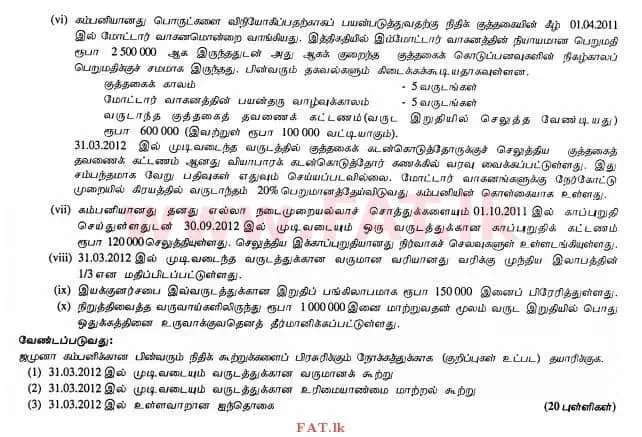 (vi) கம்பனியானது பொருட்களை விநியோகிப்பதற்காகப் பயன்படுத்துவதற்கு நிதிக் குத்தகையின் கீழ் 01.04.2011
இல் மோட்டார் வாகனமொன்றை வாங்கியது. இத்திகதியில் இம்மோட்டார் வாகனத்தின் நியாயமான பெறுமதி
ரூபா 2 500 000 ஆக இருந்ததுடன் அது ஆகக் குறைந்த குத்தகைக் கொடுப்பனவுகளின் நிகழ்காலப்
பெறுமதிக்குச் சமமாக இருந்தது. பின்வரும் தகவல்களும் கிடைக்கக்கூடியதாகவுள்ளன.
குத்தகைக் காலம் - 5 வருடங்கள்
மோட்டார் வாகனத்தின் பயன்தரு வாழ்வுக்காலம் - 5 வருடங்கள்
வருடாந்த குத்தகைத் தவணைக் கட்டணம் (வருட இறுதியில் செலுத்த வேண்டியது)
ரூபா 600 000 (இவற்றுள் ரூபா 100 000 வட்டியாகும்).
31.03.2012 இல் முடிவடைந்த வருடத்தில் குத்தகைக் கடன்கொடுத்தோருக்குச் செலுத்திய குத்தகைத்
தவணைக் கட்டணம் ஆனது வியாபாரக் கடன்கொடுத்தோர் கணக்கில் வரவு வைக்கப்பட்டுள்ளது. இது
சம்பந்தமாக வேறு பதிவுகள் எதுவும் செய்யப்படவில்லை. மோட்டார் வாகனங்களுக்கு நேர்கோட்டு
முறையில் கிரயத்தில் வருடாந்தம் 20% பெறுமானத்தேய்விடுவது கம்பனியின் கொள்கையாக உள்ளது.
(vii) கம்பனியானது தனது எல்லா நடைமுறையல்லாச் சொத்துக்களையும் 01.10.2011 இல் காப்புறுதி
செய்துள்ளதுடன் 30.09.2012 இல் முடிவடையும் ஒரு வருடத்துக்கான காப்புறுதிக் கட்டணம்
ரூபா 120 000 செலுத்தியுள்ளது. செலுத்திய இக்காப்புறுதியானது நிர்வாகச் செலவுகளுள் உள்ளடங்கியுள்ளது.
(viii) 31.03.2012 இல் முடிவடைந்த வருடத்துக்கான வருமான வரியானது வரிக்கு முந்திய இலாபத்தின்
1/3 என மதிப்பிடப்பட்டுள்ளது.
(ix) இயக்குனர்சபை இவ்வருடத்துக்கான இறுதிப் பங்கிலாபமாக ரூபா 150 000 இனைப் பிரேரித்துள்ளது.
(x) நிறுத்திவைத்த வருவாய்களிலிருந்து ரூபா 1 000 000 இனை மாற்றுவதன் மூலம் வருட இறுதியில் பொது
ஒதுக்கத்தினை உருவாக்குவதெனத் தீர்மானிக்கப்பட்டுள்ளது.
வேண்டப்படுவது:
ஜமுனா கம்பனிக்கான பின்வரும் நிதிக் கூற்றுக்களைப் பிரசுரிக்கும் நோக்கத்துக்காக (குறிப்புகள் உட்பட) தயாரிக்குக.
(1) 31.03.2012 இல் முடிவடையும் வருடத்துக்கான வருமானக் கூற்று
(2) 31.03.2012 இல் முடிவடையும் வருடத்துக்கான உரிமையாண்மை மாற்றல் கூற்று
(3) 31.03.2012 இல் உள்ளவாறான ஐந்தொகை (20 புள்ளிகள்)
FAT.lk